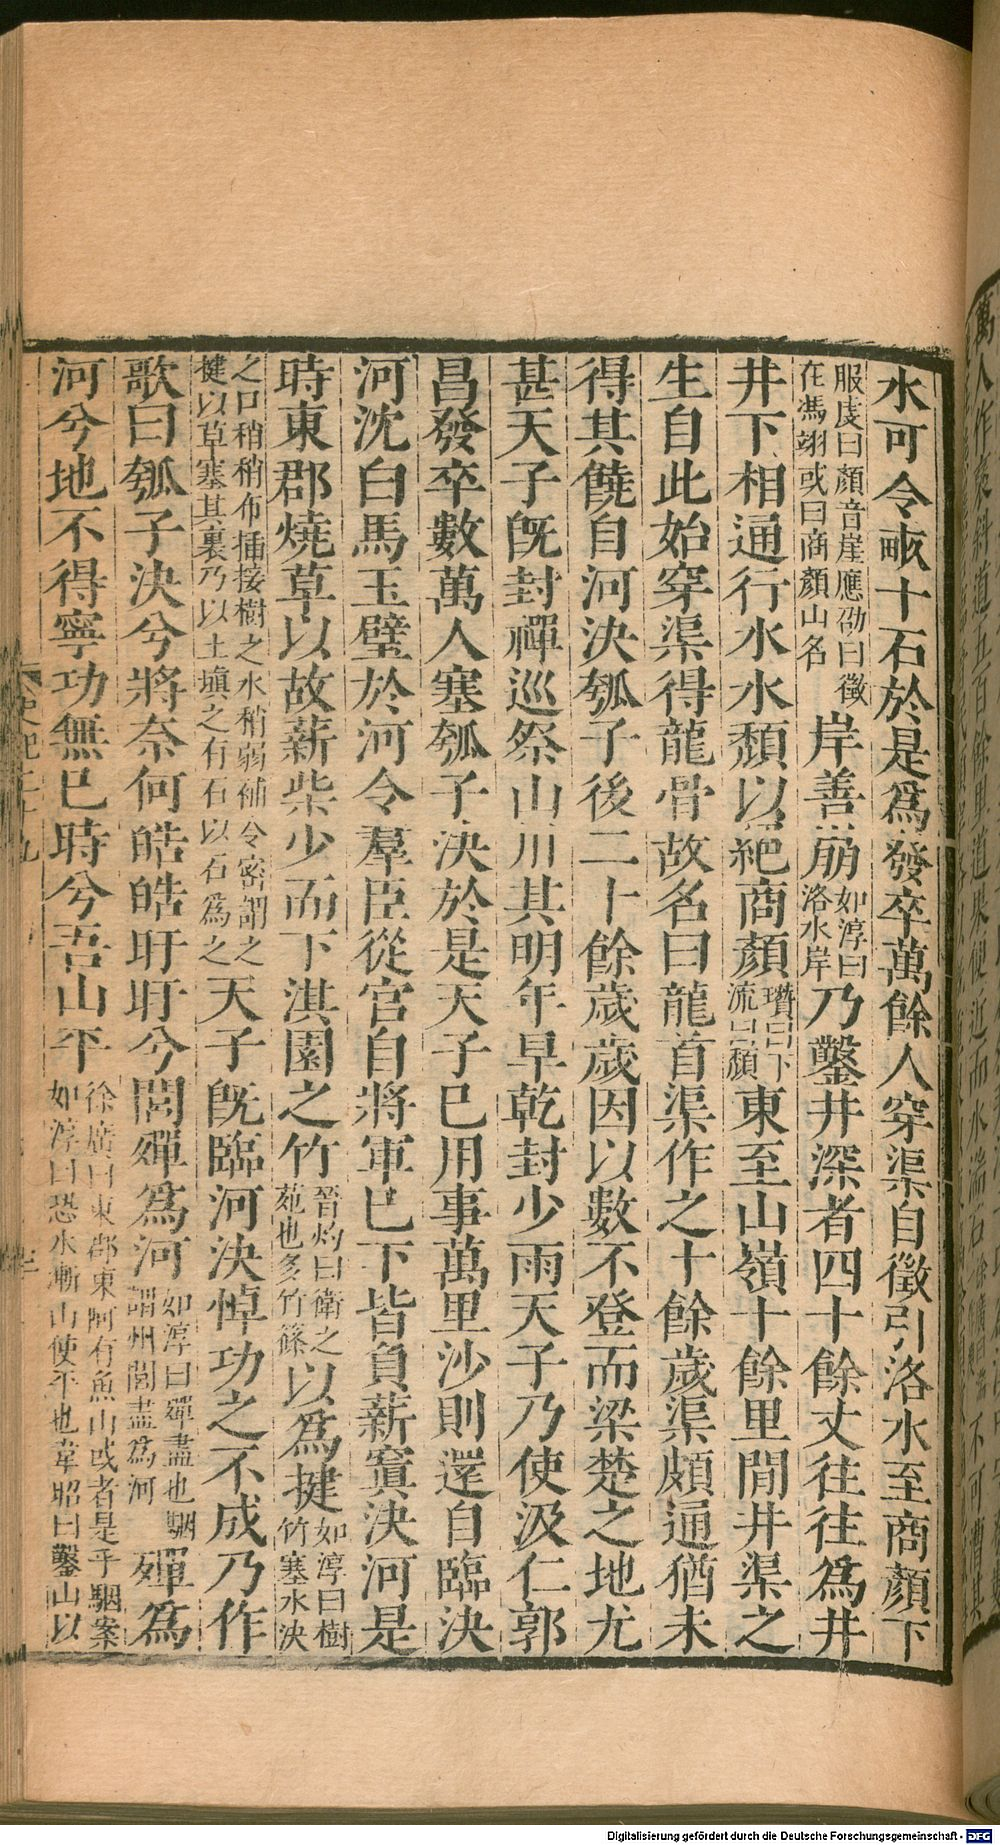 水可令畝十石於是爲發卒萬餘人穿渠自徵引洛水至商顏下
服虔曰顏音崖應劭曰徵
在馮翊或曰商顏山名
岸善崩
如淳曰
洛水岸
乃鑿井深者四十餘丈往往爲井
井下相通行水水穨以絕商顏
瓚曰下
流曰穨
東至山嶺十餘里閒井渠之
生自此始穿渠得龍骨故名曰龍首渠作之十餘歲渠頗通猶未
得其饒自河決瓠子後二十餘歲歲因以數不登而梁楚之地尤
甚天子旣封禪巡祭山川其明年旱乾封少雨天子乃使汲仁郭
昌發卒數萬人塞瓠子決於是天子已用事萬里沙則還自臨決
河沈白馬玉璧於河令羣臣從官自將軍已下皆負薪窴決河是
時東郡燒草以故薪柴少而下淇園之竹
晉灼曰衛之
苑也多竹篠
以爲揵
如淳曰樹
竹塞水決
之口稍稍布插接樹之水稍弱補令密謂之
揵以草塞其裏乃以土塡之有石以石爲之
天子旣臨河決悼功之不成乃作
歌曰瓠子決兮將奈何皓皓旰旰兮閭殫爲河
如淳曰殫盡也駰
謂州閭盡爲河
殫爲
河兮地不得寧功無已時兮吾山平
徐廣曰東郡東阿有魚山或者是乎駰案
如淳曰恐水漸山使平也韋昭曰鑿山以
史記二十九
Digitalisierung gefördert durch die Deutsche Forschungsgemeinschaft - DFG